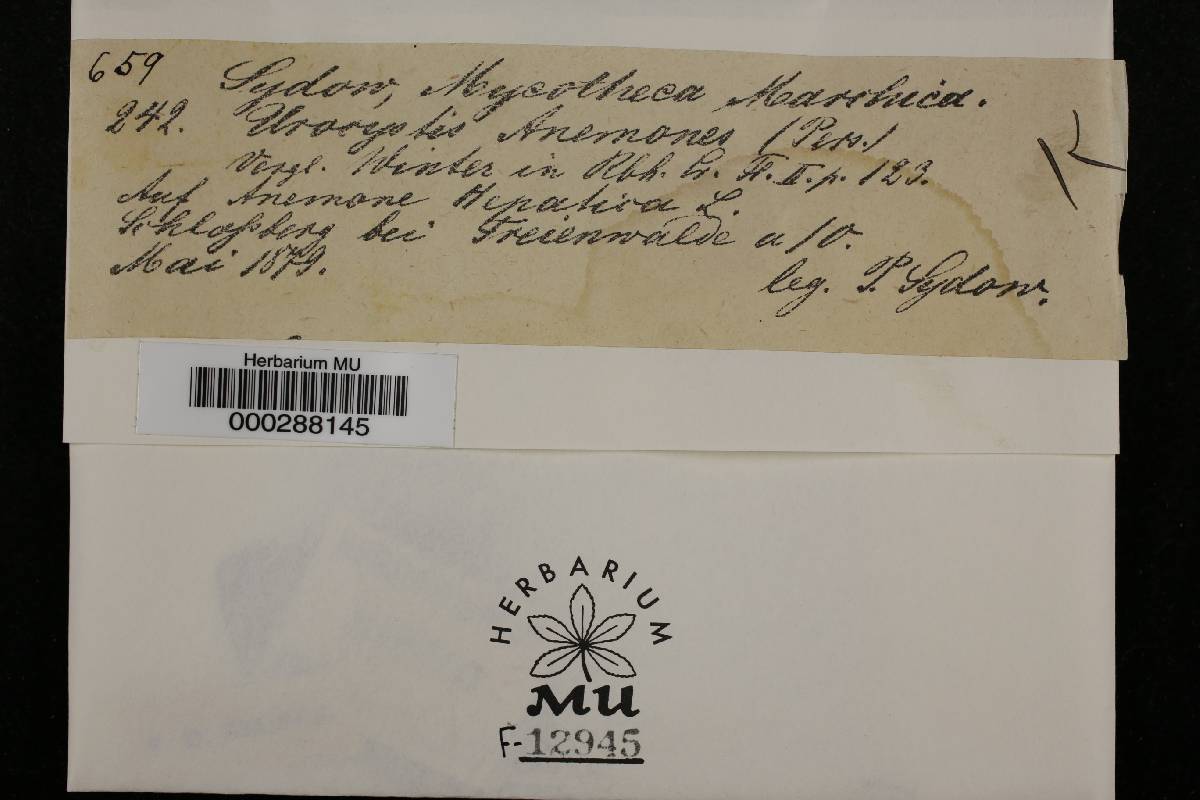 659
Sydow, Mycotheca Marchica.
242. Urocystis Anemones (Pers.)
Vergl. Winter in Rbh. Cr. Fl. II. p. 123.
Auf Anemone Hepatica L.
Schloßberg bei Freienwalde a/O.
Mai 1879.
leg. P. Sydow.
Herbarium MU
000288145
HERBARIUM
MU
F-12945